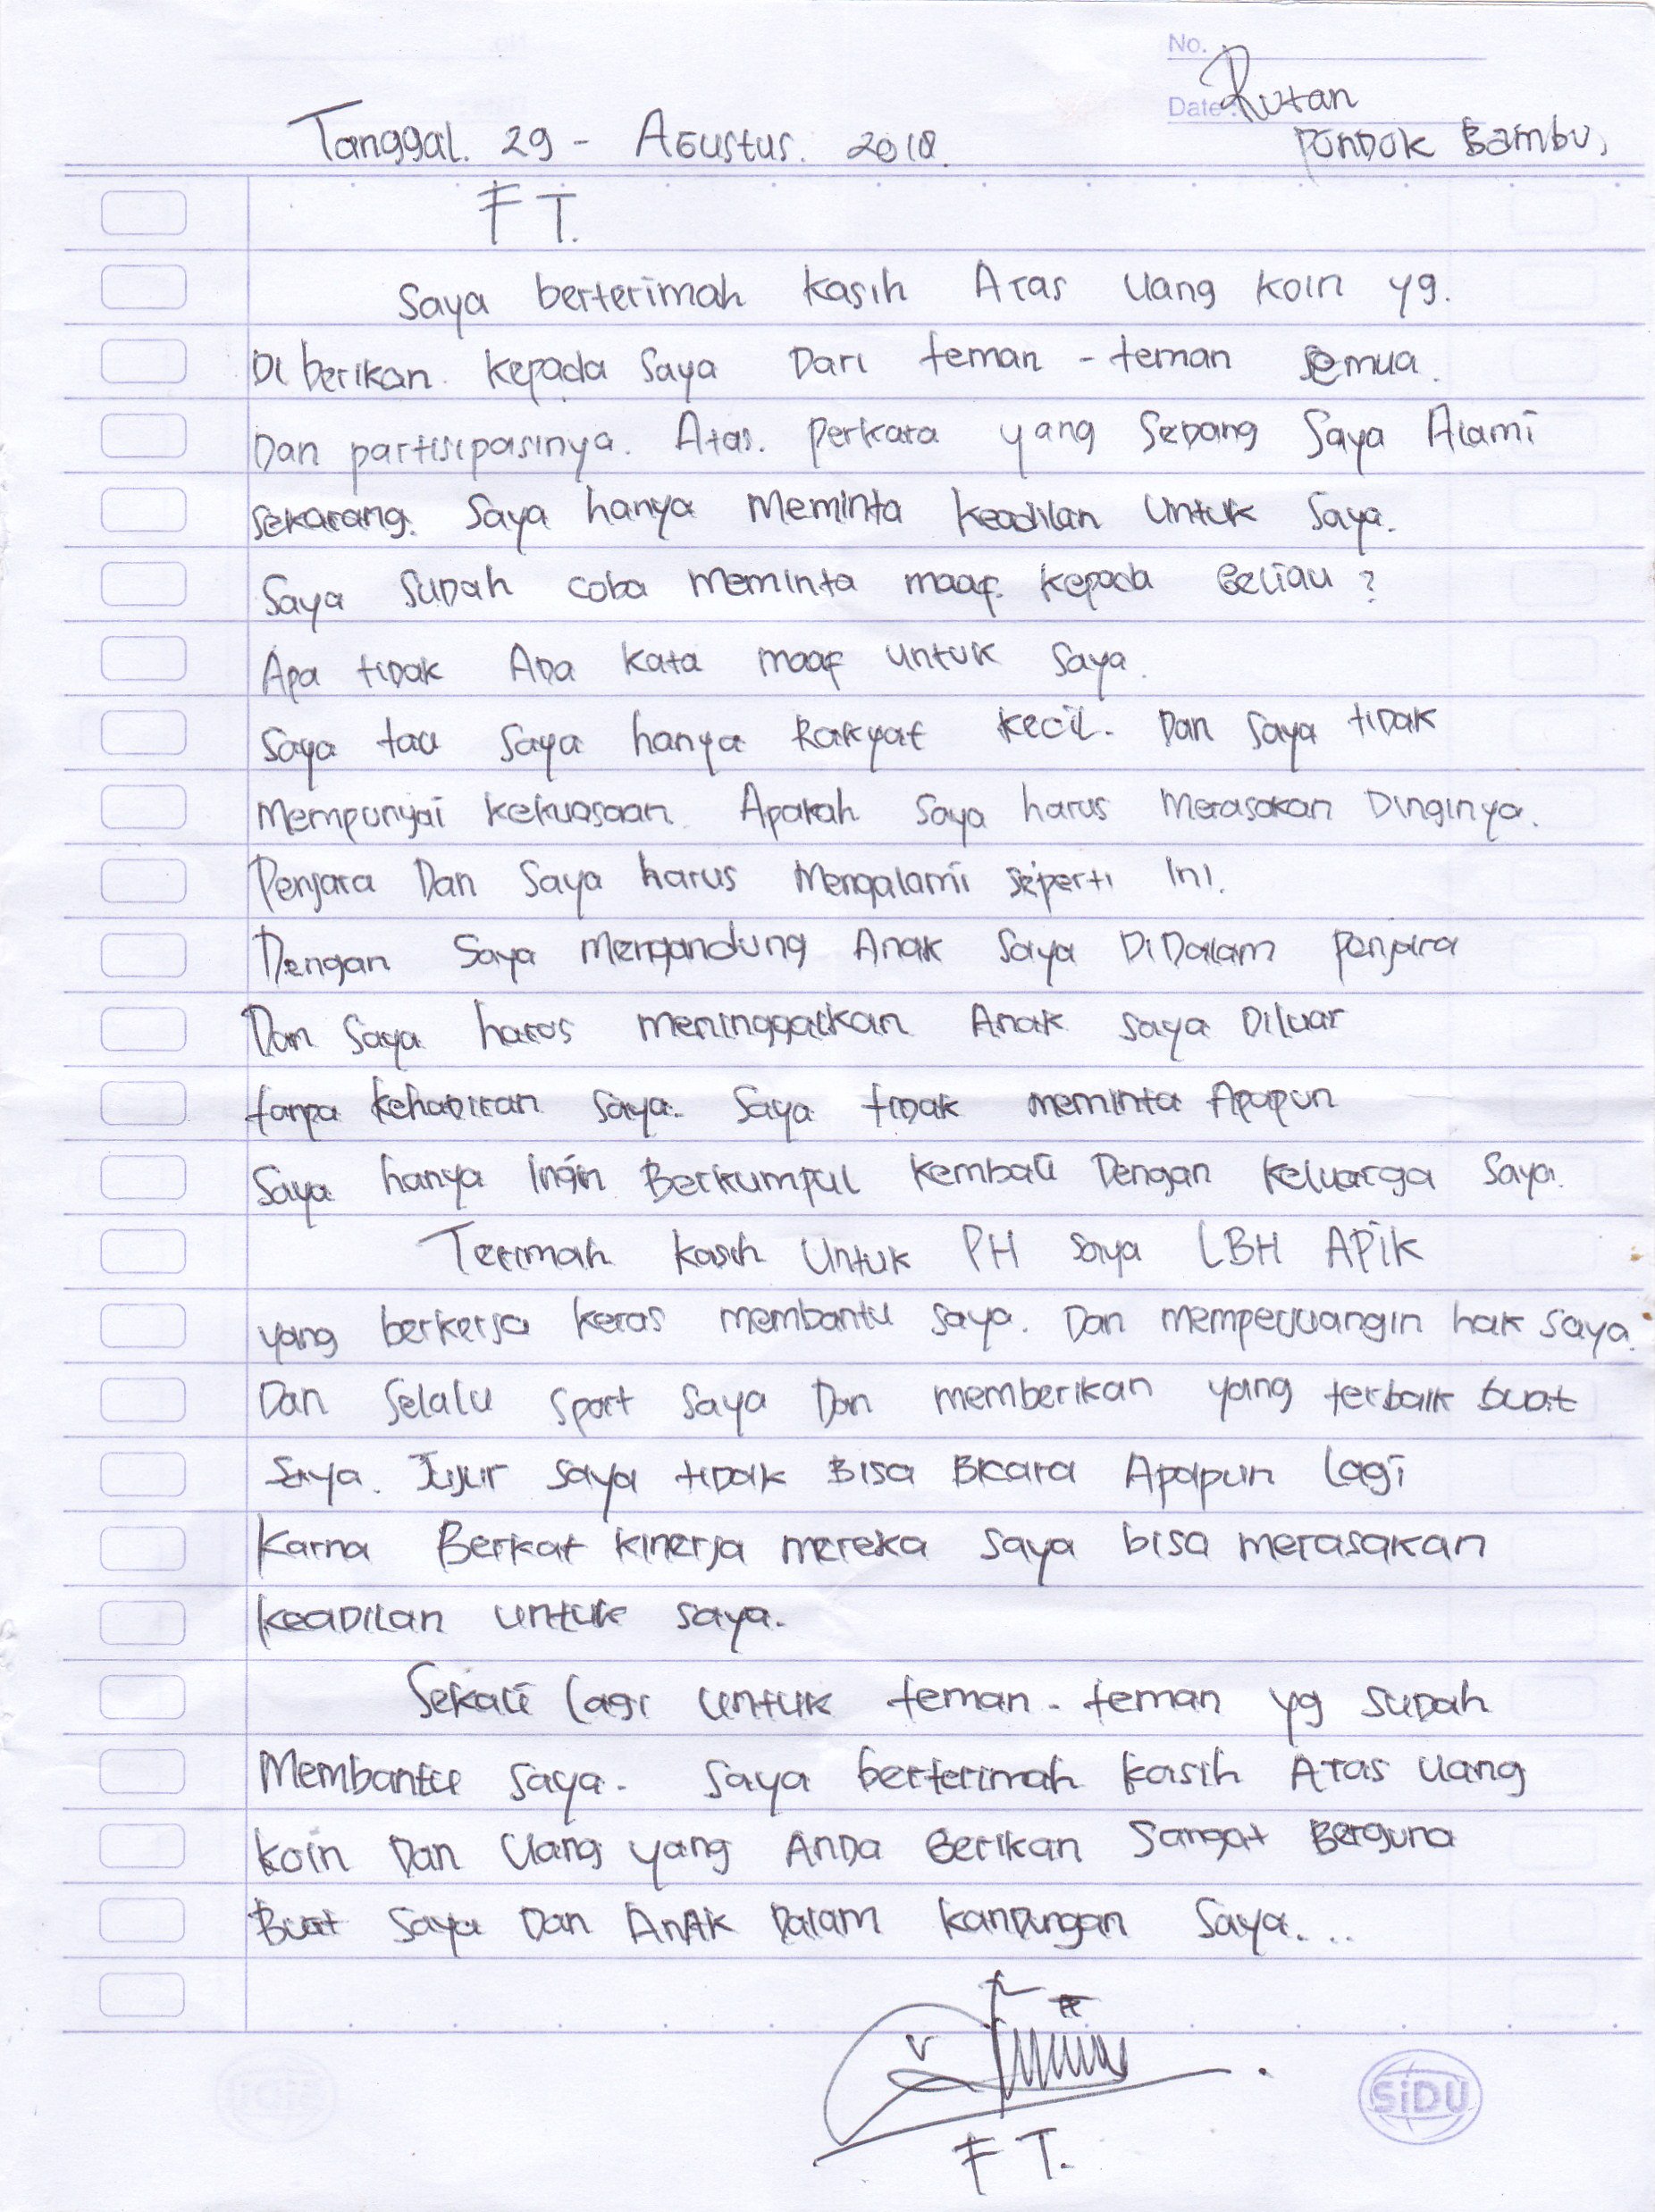 No.
Date: Rutan
Tanggal. 29 - Agustus. 2018. Pondok Bambu,
FT.
Saya berterimah kasih Atas Uang koin yg.
Di berikan. kepada Saya Dari teman - teman semua.
Dan partisipasinya. Atas. perkara yang Sedang Saya Alami
sekarang. Saya hanya Meminta keadilan Untuk Saya.
Saya Sudah coba meminta maaf. kepada Beliau ?
Apa tidak Ada kata maaf untuk saya.
Saya tau saya hanya Rakyat kecil. Dan saya tidak
Mempunyai kekuasaan. Apakah saya harus Merasakan Dinginya.
Penjara Dan Saya harus Mengalami seperti Ini.
Dengan Saya mengandung Anak Saya DiDalam penjara
Dan Saya harus meninggalkan Anak saya Diluar
tanpa kehadiran saya. Saya tidak meminta Apapun
Saya hanya Ingin Berkumpul kembali Dengan keluarga saya.
Terimah kasih Untuk PH saya LBH APiK
yang berkerja keras membantu saya. Dan memperjuangin hak saya.
Dan Selalu sport saya Dan memberikan yang terbaik buat
Saya. Jujur saya tidak Bisa Bicara Apapun lagi
Karna Berkat kinerja mereka saya bisa merasakan
keadilan untuk saya.
Sekali lagi untuk teman - teman yg sudah
Membantu saya. Saya berterimah kasih Atas Uang
koin Dan Uang yang Anda Berikan Sangat Berguna
Buat saya Dan Anak Dalam kandungan Saya...
FT.
SiDU